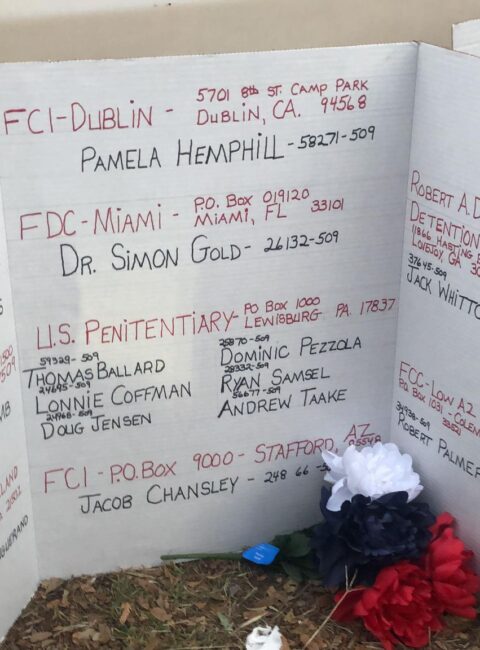 FCI-DUBLIN - 5701 8th ST. CAMP PARK
DUBLIN, CA. 94568
PAMELA HEMPHILL - 58271-509
FDC-MIAMI - P.O. BOX 019120
MIAMI, FL 33101
DR. SIMON GOLD - 26132-509
U.S. PENITENTIARY- PO BOX 1000
LEWISBURG PA 17837
THOMAS BALLARD
LONNIE COFFMAN
DOUG JENSEN
25870-509
DOMINIC PEZZOLA
28332-509
RYAN SAMSEL
56677-509
ANDREW TAAKE
FCI - P.O. BOX 9000 - STAFFORD, AZ
JACOB CHANSLEY - 248 66
ROBERT A. D
DETENTION
LOVEJOY GA 30
37645-509
JACK WHITTO
FCC-LOW AZ
33521
ROBERT PALMER